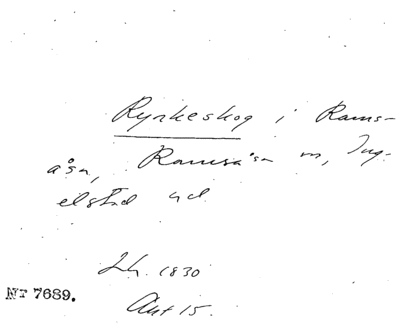 Rynkeskog i Rams-
åsa, Ramsåsa sn, Ing-
elstad hd.
Lh. 1830
Akt 15.
Nr 7689.